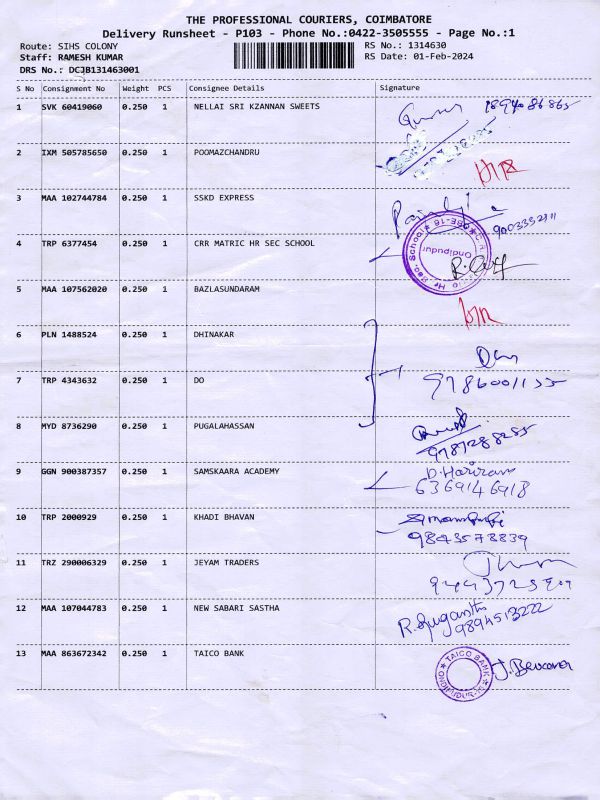 THE PROFESSIONAL COURIERS, COIMBATORE
Delivery Runsheet - P103 - Phone No.:0422-3505555 - Page No.:1
Route: SIHS COLONY
RS No.: 1314630
Staff: RAMESH KUMAR
RS Date: 01-Feb-2024
DRS No.: DCJB131463001
S No Consignment No Weight PCS Consignee Details Signature
1 SVK 60419060 0.250 1 NELLAI SRI KZANNAN SWEETS
2 IXM 505785650 0.250 1 POOMAZCHANDRU
3 MAA 102744784 0.250 1 SSKD EXPRESS
4 TRP 6377454 0.250 1 CRR MATRIC HR SEC SCHOOL
Ondipudur
5 MAA 107562020 0.250 1 BAZLASUNDARAM
6 PLN 1488524 0.250 1 DHINAKAR
7 TRP 4343632 0.250 1 DO
8 MYD 8736290 0.250 1 PUGALAHASSAN
9787288285
9 GGN 900387357 0.250 1 SAMSKAARA ACADEMY D. Hariram
6369146918
10 TRP 2000929 0.250 1 KHADI BHAVAN
9843573839
11 TRZ 290006329 0.250 1 JEYAM TRADERS
12 MAA 107044783 0.250 1 NEW SABARI SASTHA R. Suganthi
9894513222
13 MAA 863672342 0.250 1 TAICO BANK
TAICO BANK
ONDIPUDUR-16